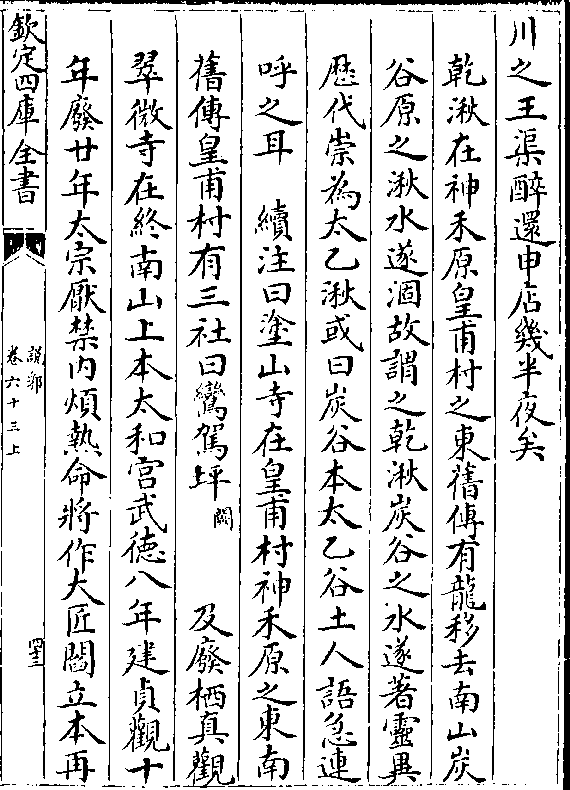 川之王渠醉還申店幾半夜矣
乾湫在神禾原皇甫村之東舊傳有龍移去南山炭
谷原之湫水遂涸故謂之乾湫炭谷之水遂著靈異
歴代崇為太乙湫或曰炭谷本太乙谷土人語急連
呼之耳　續注曰塗山寺在皇甫村神禾原之東南
舊傳皇甫村有三社曰鸞駕坪闕　及廢栖真觀
翠微寺在終南山上本太和宮武徳八年建貞觀十
年廢廿年太宗厭禁内煩熱命將作大匠閻立本再
欽定四庫全書
說郛
卷六十三上
四十三